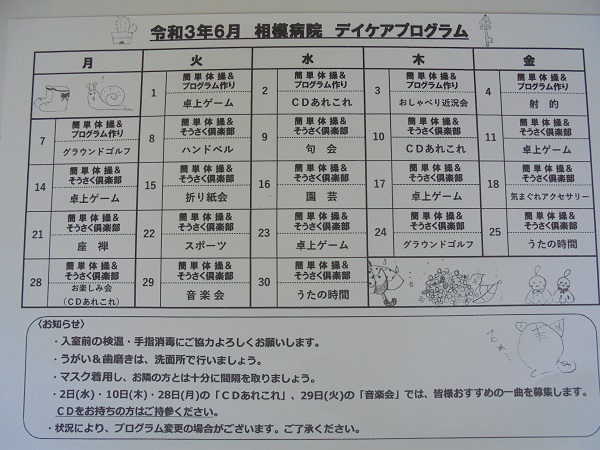 令和3年6月 相模病院 デイケアプログラム
月 火 水 木 金
1 簡単体操&プログラム作り 卓上ゲーム
2 簡単体操&プログラム作り CDあれこれ
3 簡単体操&プログラム作り おしゃべり近況会
4 簡単体操&プログラム作り 射的
7 簡単体操&プログラム作り グラウンドゴルフ
8 簡単体操&そうさく倶楽部 ハンドベル
9 簡単体操&そうさく倶楽部 句会
10 簡単体操&そうさく倶楽部 CDあれこれ
11 簡単体操&そうさく倶楽部 卓上ゲーム
14 簡単体操&そうさく倶楽部 卓上ゲーム
15 簡単体操&そうさく倶楽部 折り紙会
16 簡単体操&そうさく倶楽部 園芸
17 簡単体操&そうさく倶楽部 卓上ゲーム
18 簡単体操&そうさく倶楽部 気まぐれアクセサリー
21 簡単体操&そうさく倶楽部 座禅
22 簡単体操&そうさく倶楽部 スポーツ
23 簡単体操&そうさく倶楽部 卓上ゲーム
24 簡単体操&そうさく倶楽部 グラウンドゴルフ
25 簡単体操&そうさく倶楽部 うたの時間
28 簡単体操&そうさく倶楽部 お楽しみ会 (CDあれこれ)
29 簡単体操&そうさく倶楽部 音楽会
30 簡単体操&そうさく倶楽部 うたの時間
〈お知らせ〉
・入室前の検温・手指消毒にご協力よろしくお願いします。
・うがい&歯磨きは、洗面所で行いましょう。
・マスク着用し、お隣の方とは十分に間隔を取りましょう。
・2日(水)・10日(木)・28日(月)の「CDあれこれ」、29日(火)の「音楽会」では、皆様おすすめの一曲を募集します。
CDをお持ちの方はご持参ください。
・状況により、プログラム変更の場合がございます。ご了承ください。